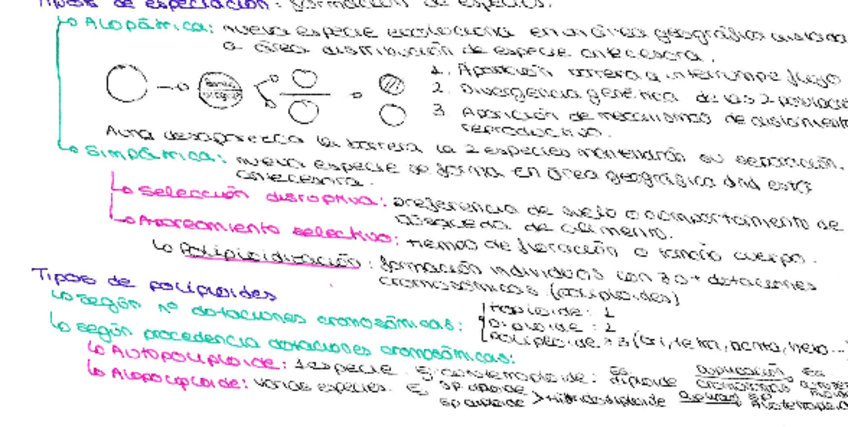 Tipos de especiación: formación de especies.
↳ Alopátrica: nueva especie evoluciona en un área geográfica aislada
a área distribución de especie antecesora.
1. Aparición barrera q interrumpe flujo
2. Divergencia genética de las 2 poblaciones
3. Aparición de mecanismos de aislamiento
reproductivo.
Aunq desaparezca la barrera la 2 especies mantendrán su separación.
↳ Simpátrica: nueva especie se forma en área geográfica dnd está
antecesora.
↳ Selección disruptiva: preferencia de suelo o comportamiento de
búsqueda de alimento.
↳ Apareamiento selectivo: tiempo de floración o tamaño cuerpo.
↳ Poliploidización: formación individuos con 3 o + dotaciones
cromosómicas (poliploides)
Tipos de poliploides
↳ Según nº dotaciones cromosómicas:
haploide: 1
diploide: 2
poliploide +3 (tri, tetra, penta, hexa...
↳ Según procedencia dotaciones cromosómicas:
↳ Autopoliploide: 1 especie. Ej autotetraploide: Es diploide duplicación cromosómica Es
↳ Alopoliploide: varias especies. Ej sp diploide
sp diploide > Híbrido diploide